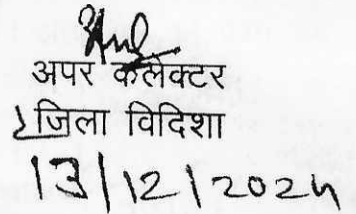 अपर कलेक्टर
जिला विदिशा
13/12/2024